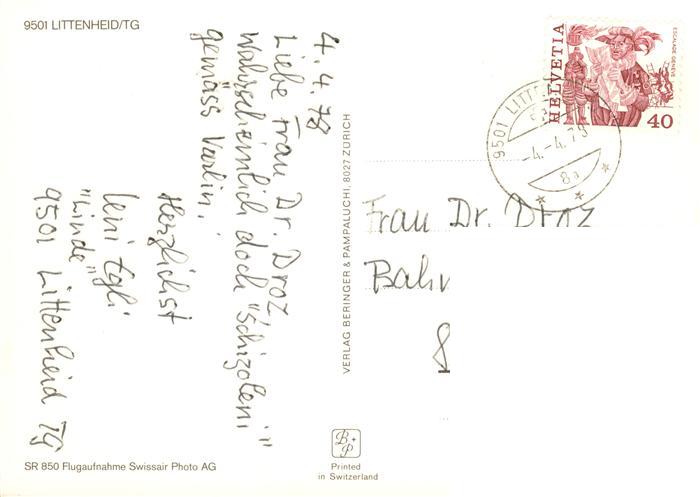 9501 LITTENHEID/TG
4.4.78
Liebe Frau Dr. Droz
Wahrscheinlich doch "schizoleni"
gemäss Varlin!
Herzlichst
Leni Egli
"Linde"
9501 Littenheid TG
SR 850 Flugaufnahme Swissair Photo AG
VERLAG BERINGER & PAMPALUCHI, 8027 ZÜRICH
B+P
Printed
in Switzerland
HELVETIA
ESCALADE GENÈVE
40
9501 LITTE
-4.-4.78
8a
Frau Dr. Droz
Bahn
8